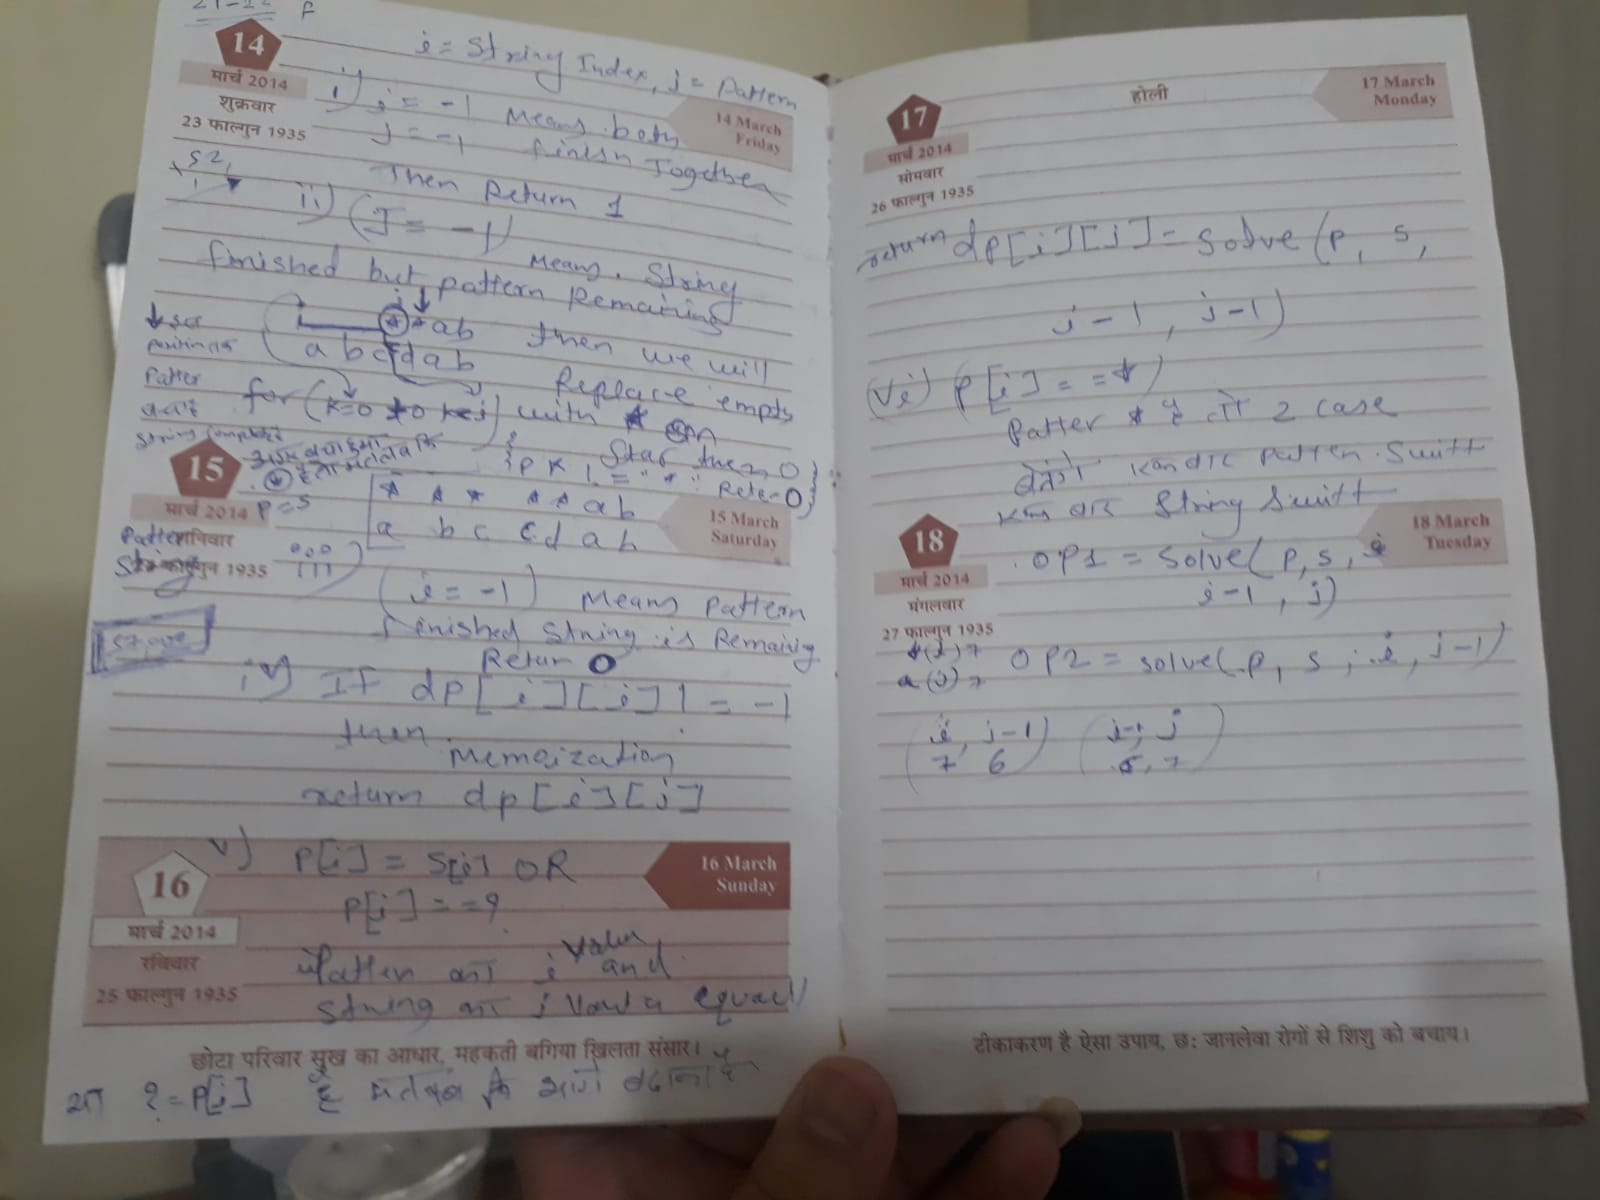 14
मार्च 2014
शुक्रवार
23 फाल्गुन 1935
14 March
Friday
i = String Index, j = Pattern
i) i = -1 Means both
j = -1 finish Together
Then Return 1
ii) (J = -1) Means String
finished but pattern Remaining
* * ab then we will
a b c d a b Replace empty
for (k=0 with *
Star then 0
15
मार्च 2014
शनिवार
फाल्गुन 1935
15 March
Saturday
P = S
Pattern
String
* * * * * a b
a b c c d a b
iii)
(i = -1) Means pattern
finished string is Remaining
Return 0
iv) If dp[i][j] != -1
then Memoization
return dp[i][j]
16
मार्च 2014
रविवार
25 फाल्गुन 1935
16 March
Sunday
v) P[i] = S[j] OR
P[i] == ?
Patten का i value and
string का j value equal
छोटा परिवार सुख का आधार, महकती बगिया खिलता संसार।
या ? = P[i] है मतलब कि आगे बढाना है
17
मार्च 2014
सोमवार
26 फाल्गुन 1935
होली
17 March
Monday
return dp[i][j] = solve(p, s,
i-1, j-1)
(vi) P[i] == *)
Patter * है तो 2 case
बनेंगे एक बार patten swift
एक बार String Swift
18
मार्च 2014
मंगलवार
27 फाल्गुन 1935
18 March
Tuesday
OP1 = solve( p, s,
i-1, j)
*(i) 7
a(j) 7
OP2 = solve( p, s, i, j-1)
(i, j-1) (i-1, j)
7 6 6, 7
टीकाकरण है ऐसा उपाय, छः जानलेवा रोगों से शिशु को बचाय।